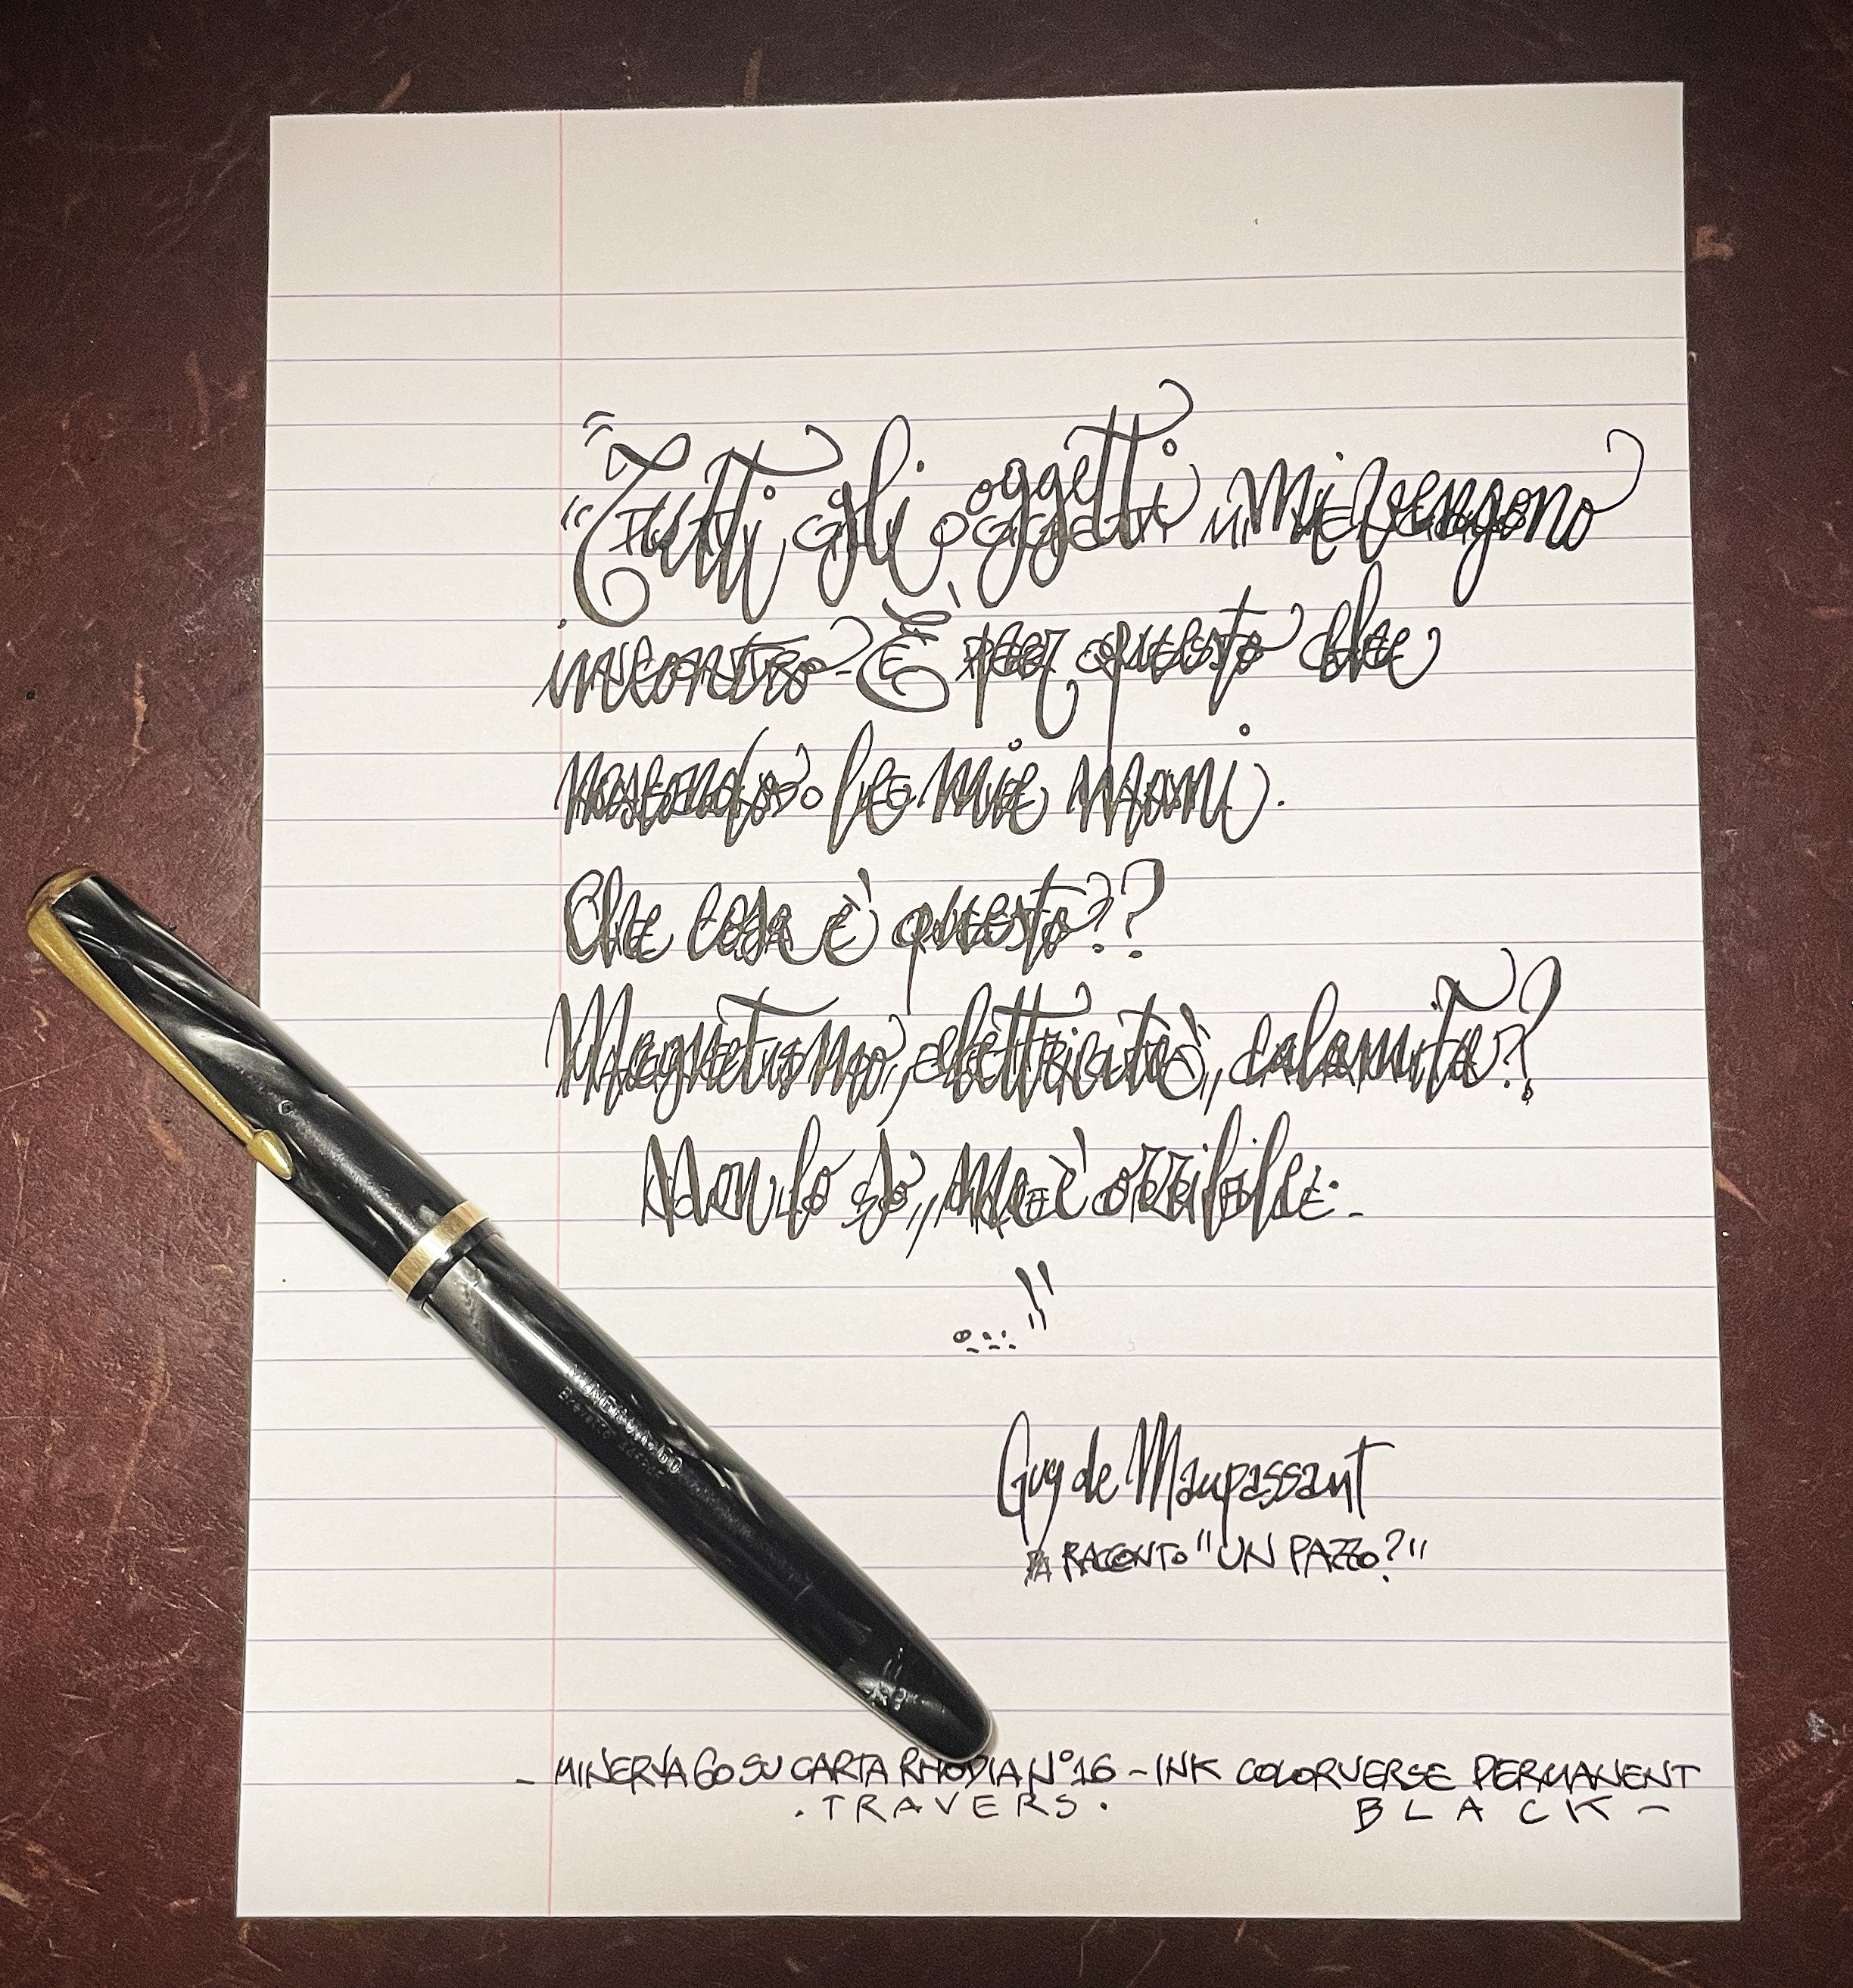 "Tutti gli oggetti mi vengono
incontro. È per questo che
nascondo le mie mani.
Che cosa è questo?
Magnetismo, elettricità, calamita?
Non lo so, ma è orribile.
..."
Guy de Maupassant
DA RACCONTO "UN PAZZO?"
MINERVA 60
Brevetto
- MINERVA 60 SU CARTA RHODIA N°16 - INK COLORVERSE PERMANENT
. TRAVERS . BLACK -